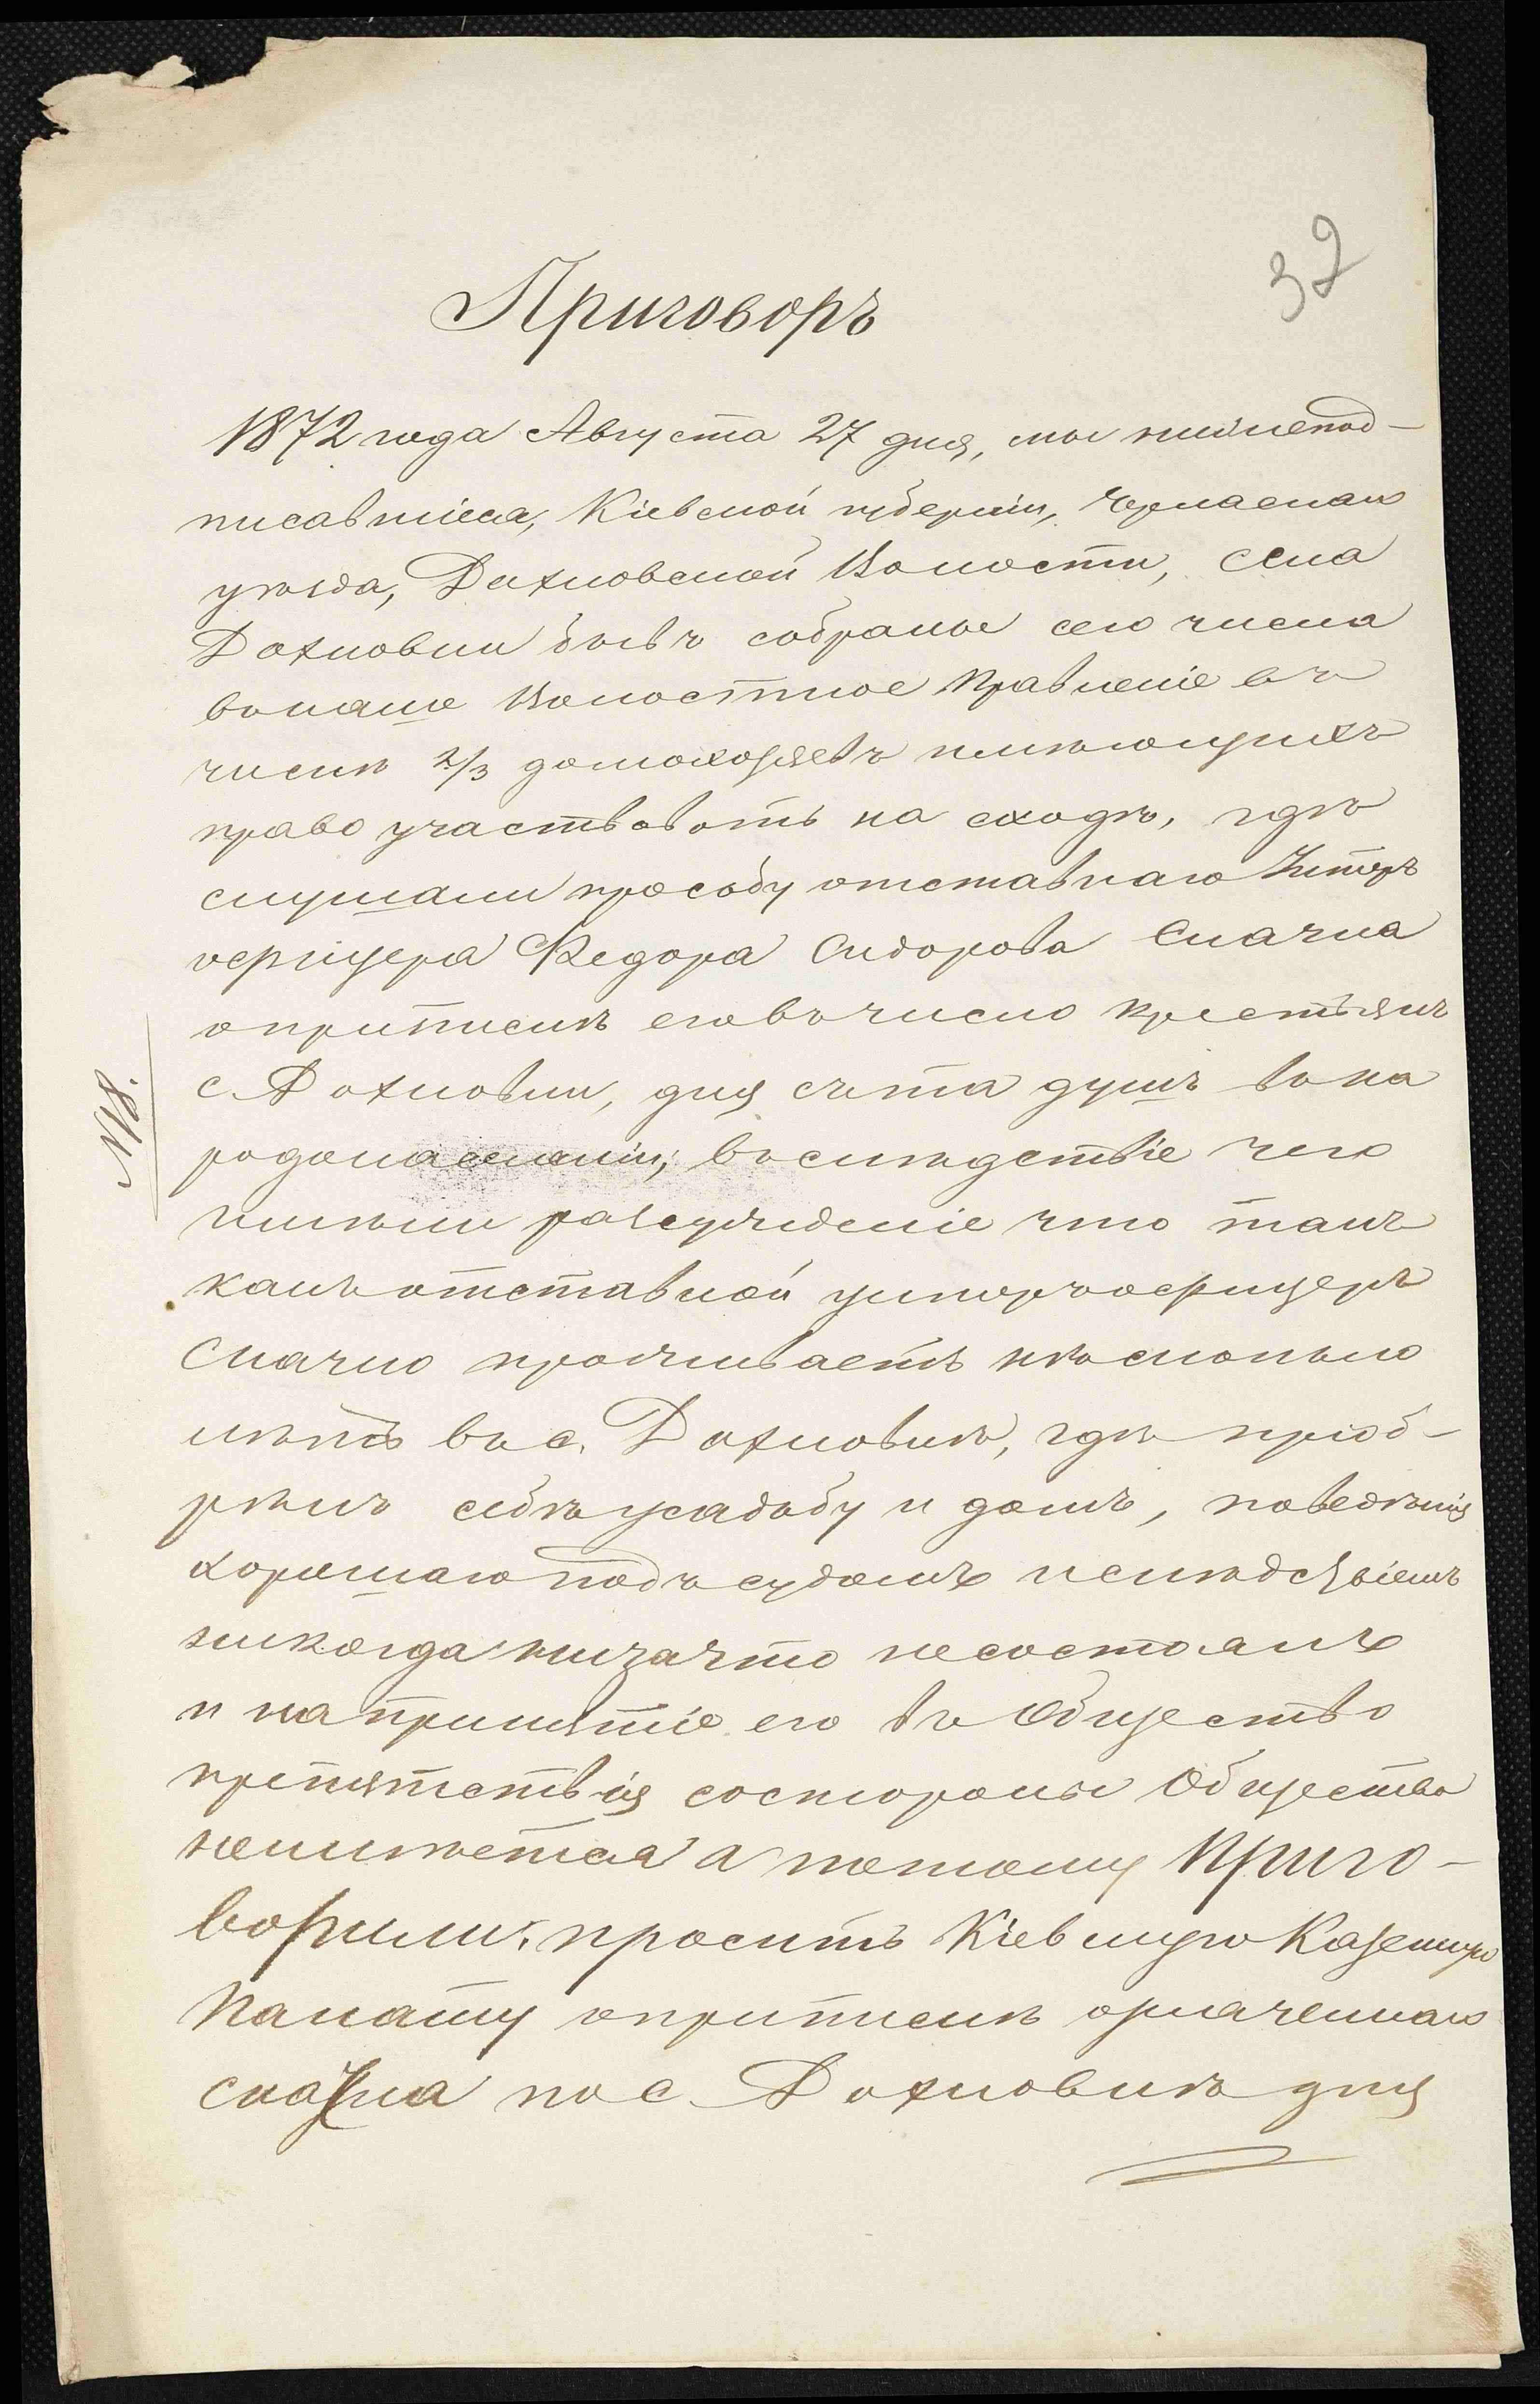 32
Приговоръ
1872 года Августа 27 дня, мы нижепод-
писавшіеся, Кіевской губерніи, Черкаскаго
уѣзда, Дахновской Волости, села
Дахновки бывъ собраные сего числа
внаше Волостное Правленіе въ
числѣ 2/3 домохозяевъ имѣющихъ
право участвовать на сходѣ, гдѣ
слушали прозьбу отставнаго Унтеръ
офицера Федора Сидорова Скачка
оприпискѣ еговъ число Крестьянъ
с Дахновки, для счета душъ вона
родонаселеніи, вслѣдствіе чего
имѣли разсужденіе что такъ
какъ отставной унтеръ офицеръ
Скачко проживаетъ нѣсколько
лѣтъ въ с. Дахновкѣ, гдѣ пріоб-
рѣлъ себѣ усадьбу и домъ, поведѣнія
хорошаго подъ судомъислѣдствіемъ
никогда низачто несостоялъ
и на принятіе его въ Общество
препятствія состороны Общества
неимѣется а потому Приго-
ворили: просить Кіевскую Казенную
Палату оприпискѣ означеннаго
Скачка по с Дахновкѣ для
№8.